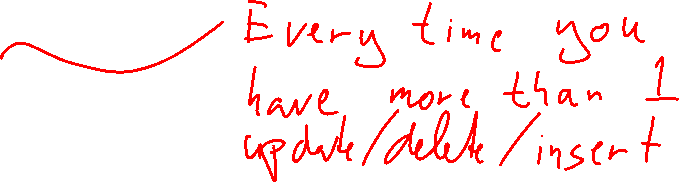 Every time you
have more than 1
update/delete/insert